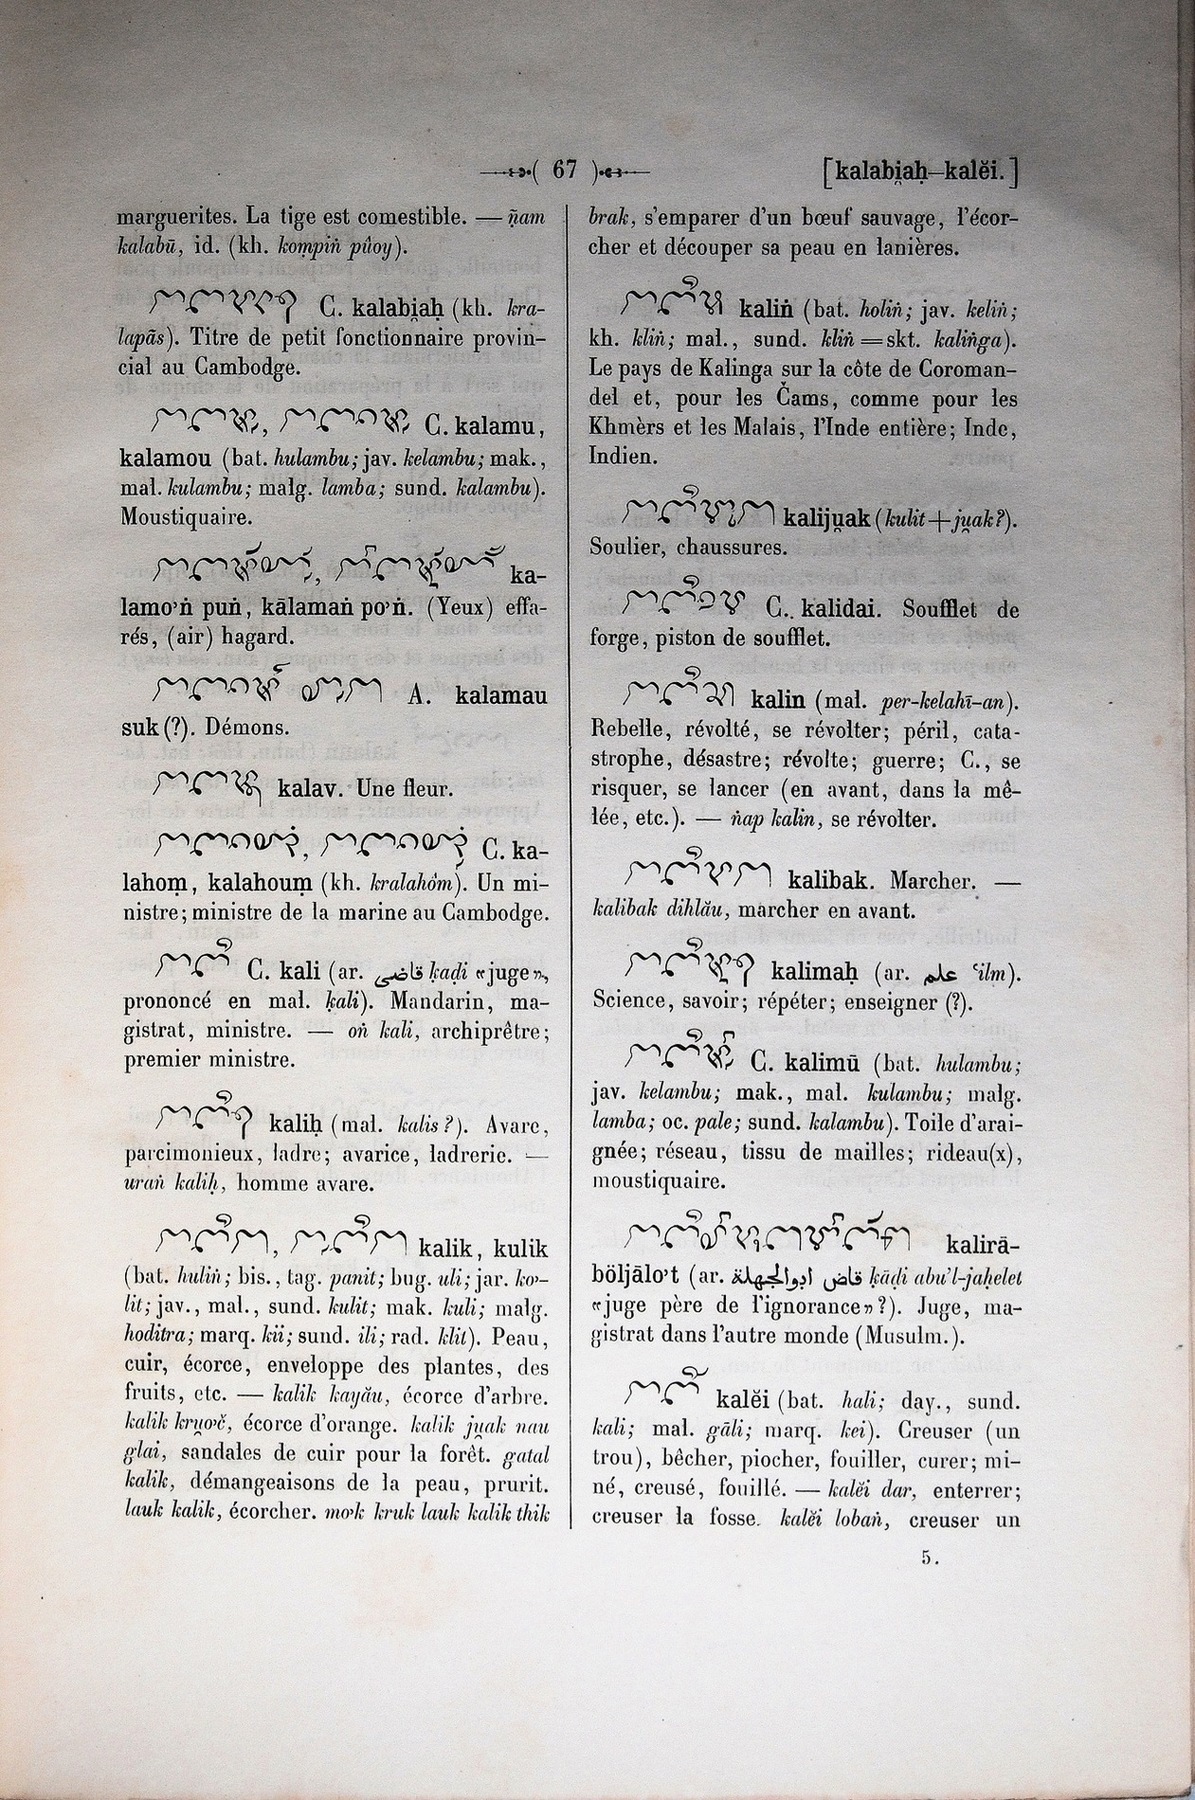 67
[kalabi̯aḥ—kalĕi.]
marguerites. La tige est comestible. — ñam
kalabū, id. (kh. koṃpiṅ pûoy).
C. kalabi̯aḥ (kh. kra-
lapãs). Titre de petit fonctionnaire provin-
cial au Cambodge.
C. kalamu,
kalamou (bat. hulambu; jav. kelambu; mak.,
mal. kulambu; malg. lamba; sund. kalambu).
Moustiquaire.
ka-
lamoʾṅ puṅ, kālamaṅ poʾṅ. (Yeux) effa-
rés, (air) hagard.
A. kalamau
suk (?). Démons.
kalav. Une fleur.
C. ka-
lahoṃ, kalahouṃ (kh. kralahôm). Un mi-
nistre; ministre de la marine au Cambodge.
C. kali (ar. قاضى ḳaḍi «juge»,
prononcé en mal. ḳali). Mandarin, ma-
gistrat, ministre. — oṅ kali, archiprêtre;
premier ministre.
kaliḥ (mal. kalis?). Avare,
parcimonieux, ladre; avarice, ladrerie. —
uraṅ kaliḥ, homme avare.
kalik, kulik
(bat. huliṅ; bis., tag. panit; bug. uli; jar. koʾ-
lit; jav., mal., sund. kulit; mak. kuli; malg.
hoditra; marq. kii; sund. ili; rad. klit). Peau,
cuir, écorce, enveloppe des plantes, des
fruits, etc. — kalik kayău, écorce d'arbre.
kalik kru̯oʾč, écorce d'orange. kalik ju̯ak nau
glai, sandales de cuir pour la forêt. gatal
kalik, démangeaisons de la peau, prurit.
lauk kalik, écorcher. moʾk kruk lauk kalik thik
brak, s'emparer d'un bœuf sauvage, l'écor-
cher et découper sa peau en lanières.
kaliṅ (bat. holiṅ; jav. keliṅ;
kh. kliṅ; mal., sund. kliṅ = skt. kaliṅga).
Le pays de Kalinga sur la côte de Coroman-
del et, pour les Čams, comme pour les
Khmèrs et les Malais, l'Inde entière; Inde,
Indien.
kaliju̯ak (kulit + ju̯ak?).
Soulier, chaussures.
C. kalidai. Soufflet de
forge, piston de soufflet.
kalin (mal. per-kelahī-an).
Rebelle, révolté, se révolter; péril, cata-
strophe, désastre; révolte; guerre; C., se
risquer, se lancer (en avant, dans la mê-
lée, etc.). — ṅap kalin, se révolter.
kalibak. Marcher. —
kalibak dihlău, marcher en avant.
kalimaḥ (ar. علم ʿilm).
Science, savoir; répéter; enseigner (?).
C. kalimū (bat. hulambu;
jav. kelambu; mak., mal. kulambu; malg.
lamba; oc. pale; sund. kalambu). Toile d'arai-
gnée; réseau, tissu de mailles; rideau(x),
moustiquaire.
kalirā-
böljāloʾt (ar. قاض ابوالجهلة ḳāḍi abu'l-jaḥelet
«juge père de l'ignorance»?). Juge, ma-
gistrat dans l'autre monde (Musulm.).
kalĕi (bat. hali; day., sund.
kali; mal. gāli; marq. kei). Creuser (un
trou), bêcher, piocher, fouiller, curer; mi-
né, creusé, fouillé. — kalĕi dar, enterrer;
creuser la fosse. kalĕi lobaṅ, creuser un
5.